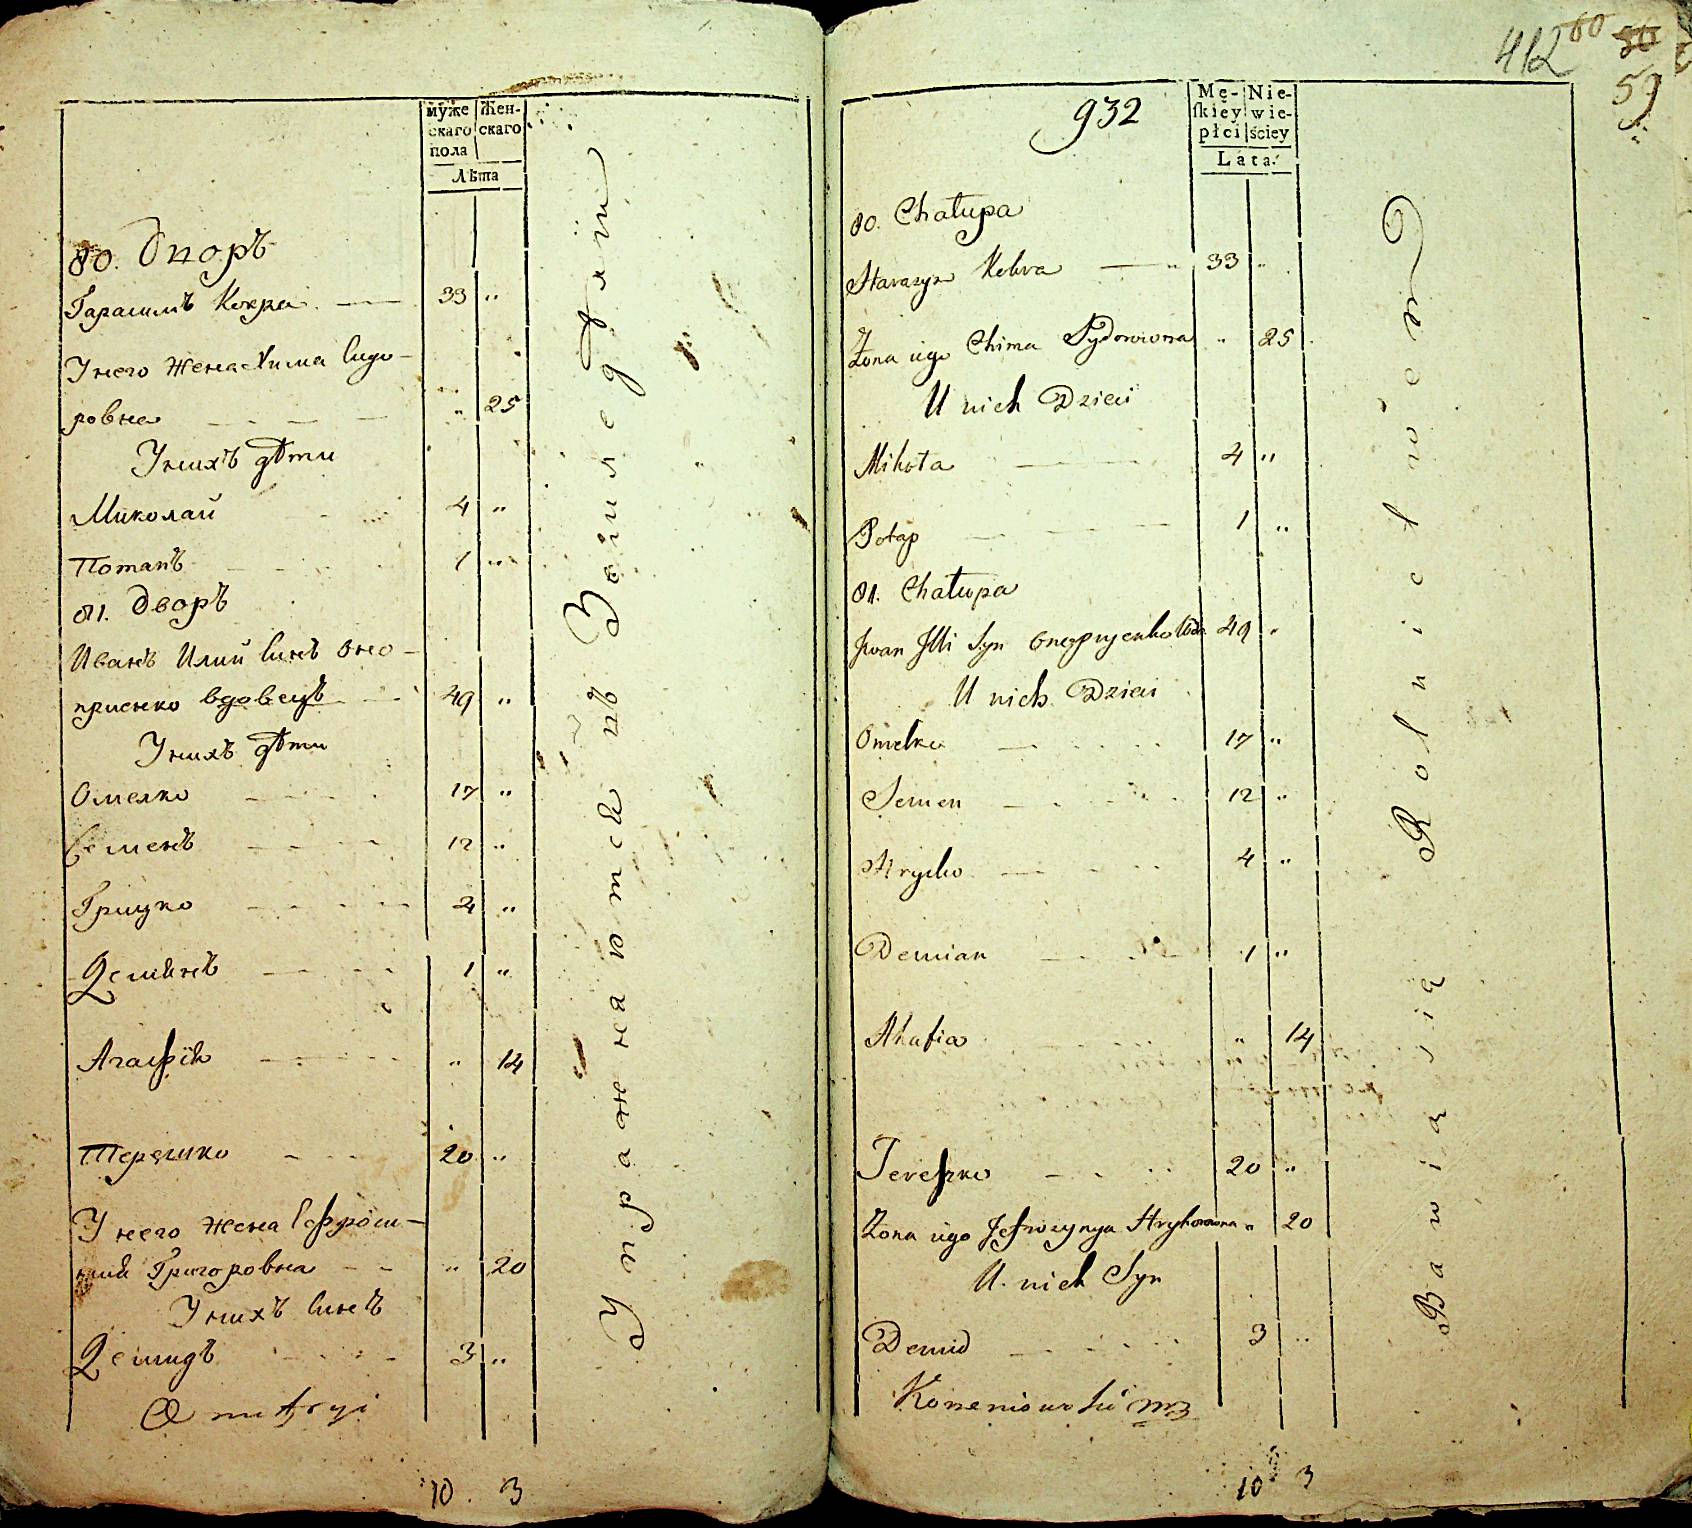 муже
скаго
пола
Жен-
скаго
Лѣта
80. Дворъ
Гарасимъ Кохра — 33 "
Унего Жена Хима Сидо-
ровна " 25
Унихъ дѣти
Миколай 4 "
Потапъ 1 "
81. Дворъ
Иванъ Илии Синъ Оно-
приенко вдовецъ 49 "
Унихъ дѣти
Омелко 17 "
Семенъ 12 "
Грицко 4 "
Демянъ 1 "
Агафія " 14
Терешко 20 "
У него жена Ефроси-
ния Григоровна " 20
Унихъ Синъ
Демидъ 3 "
Dmitryi
10. 3
Упражнаются въ Земледѣлїи
412 60 30
59
932
Mę-
skiey
płci
Nie-
wie-
ściey
Lata.
80. Chałupa
Harasym Kohra — 33 "
Żona iego Chima Sydorowna " 25
U nich Dzieci
Mikoła 4 "
Potap 1 "
81. Chałupa
Jwan Jlli Syn 49 "
U nich Dzieci
Omelko 17 "
Semen 12 "
Hrycko 4 "
Demian 1 "
Ahafia " 14
Tereszko 20 "
Żona iego Jefrozynya Hryhorowna " 20
U nich Syn
Demid 3 "
10 3
Bawią się Rolnictwem